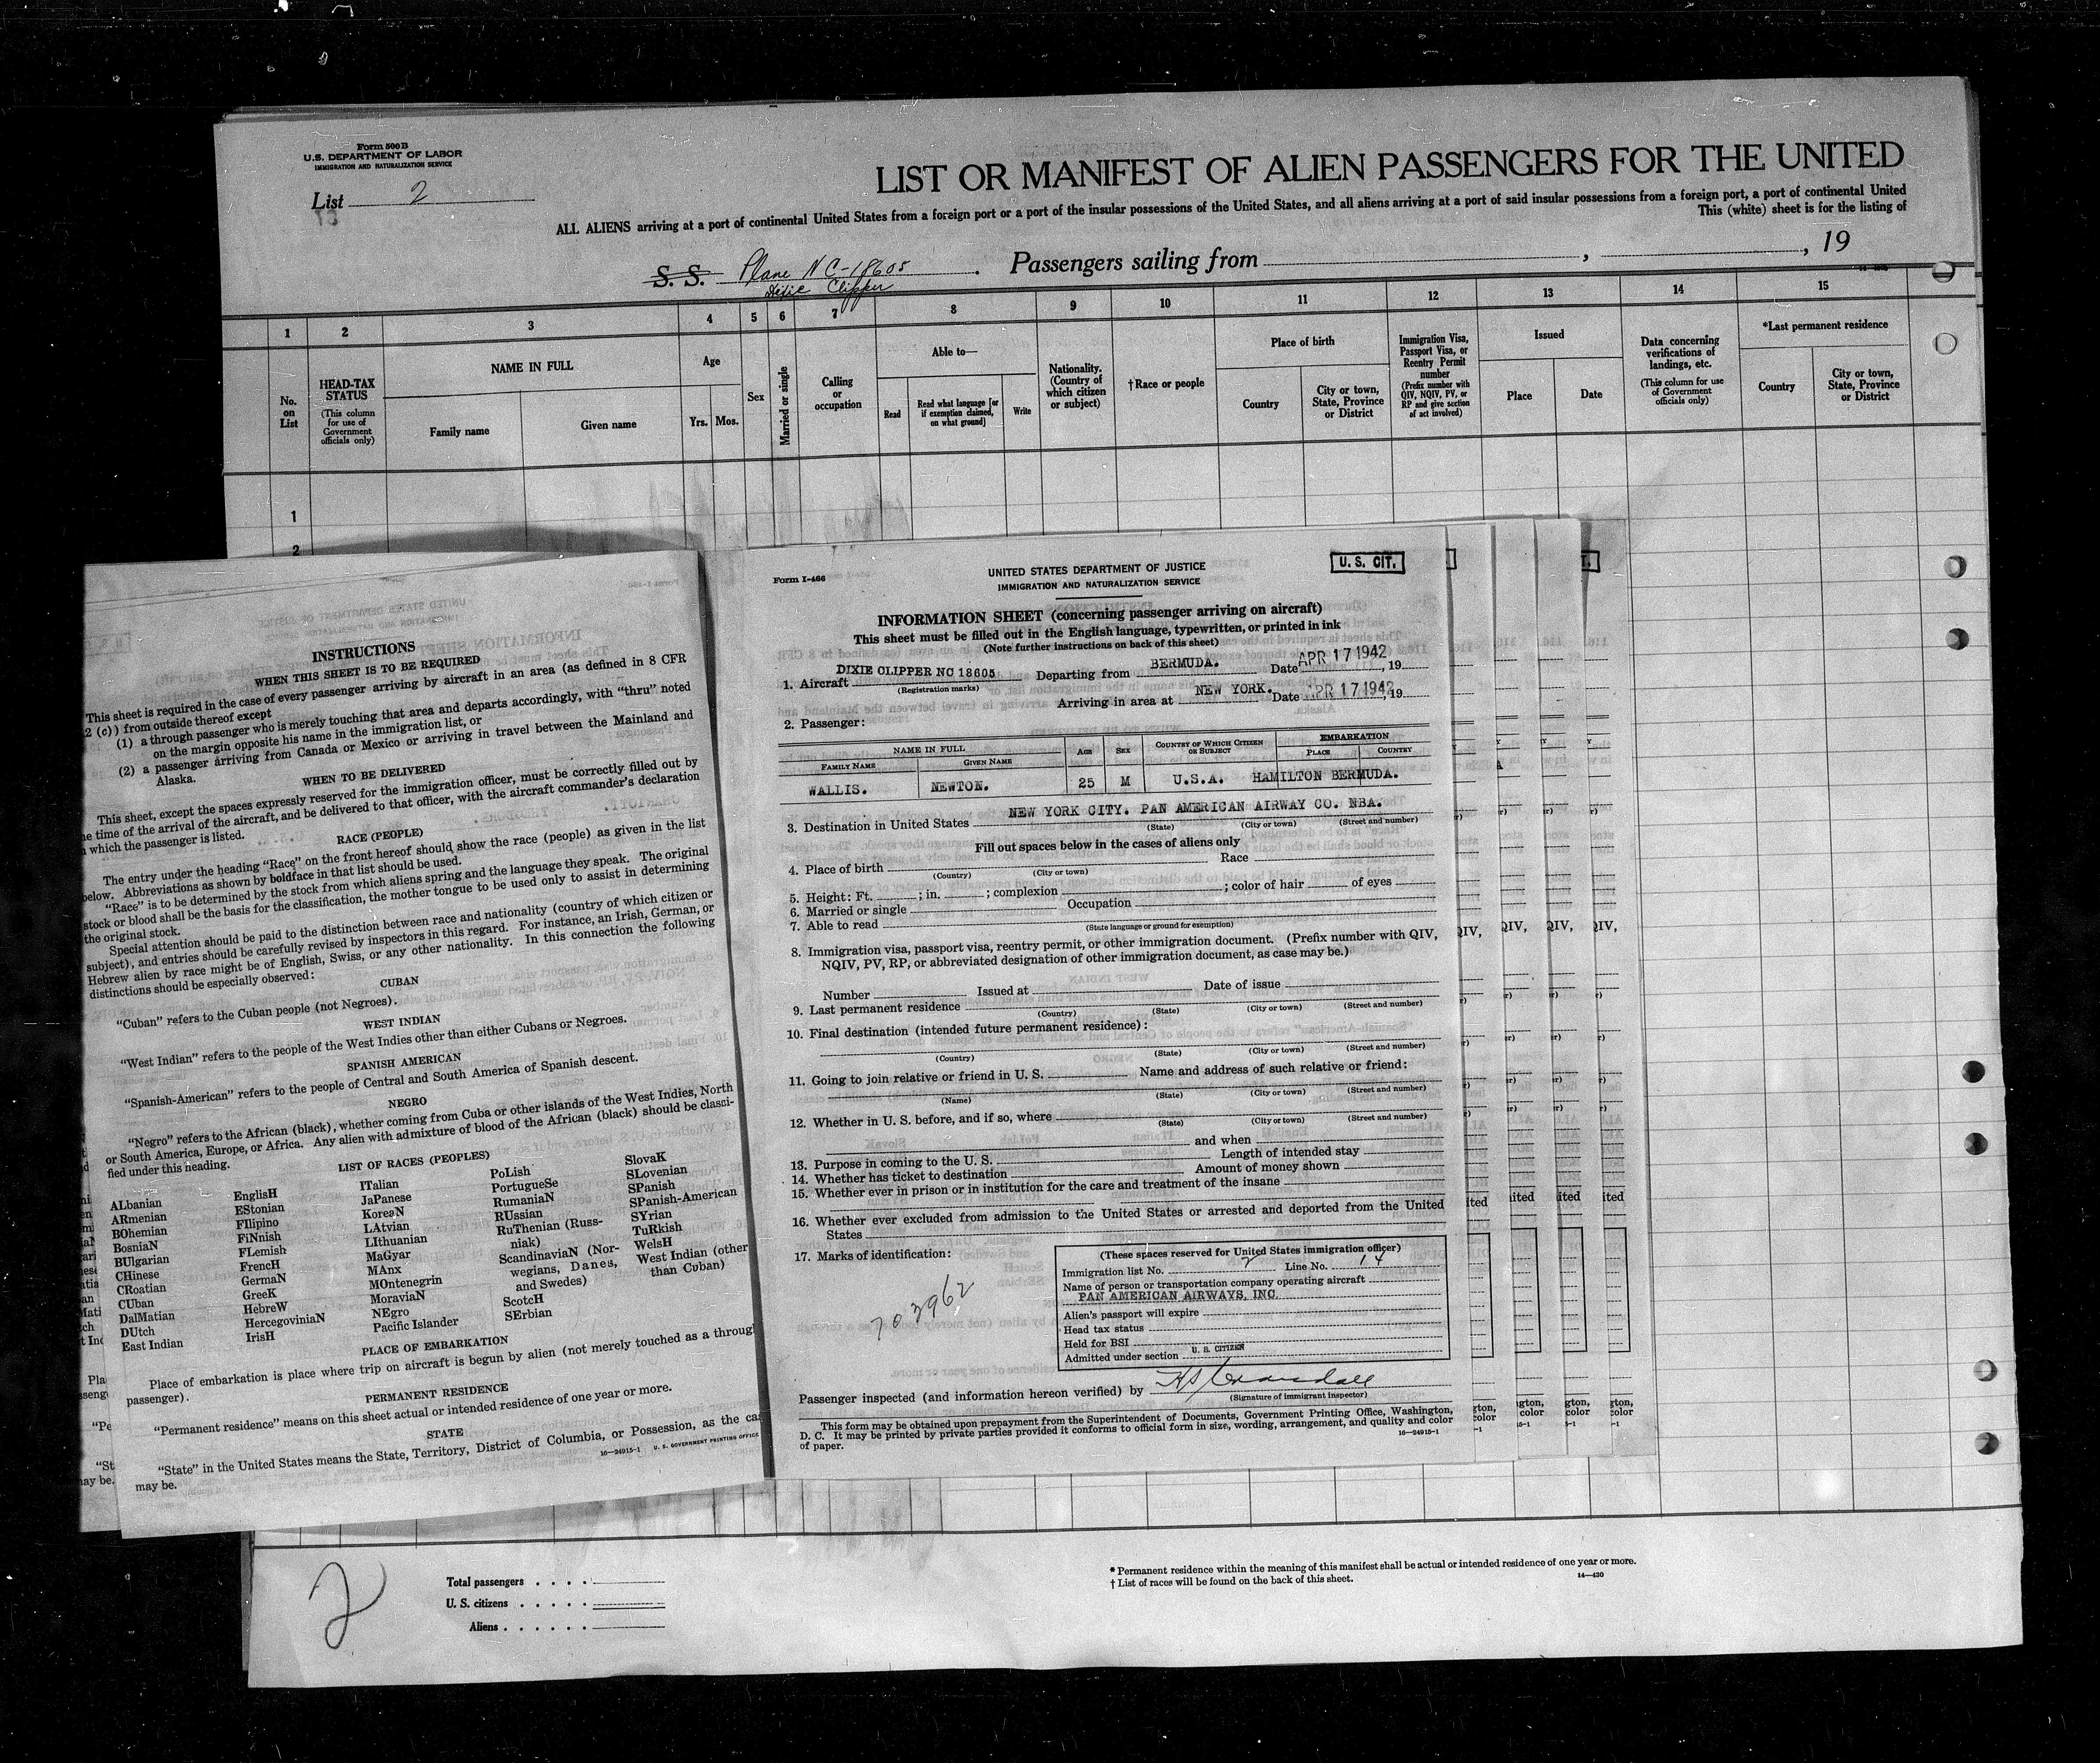 Form 500B
U.S. DEPARTMENT OF LABOR
IMMIGRATION AND NATURALIZATION SERVICE
List 2
LIST OR MANIFEST OF ALIEN PASSENGERS FOR THE UNITED
ALL ALIENS arriving at a port of continental United States from a foreign port or a port of the insular possessions of the United States, and all aliens arriving at a port of said insular possessions from a foreign port, a port of continental United
This (white) sheet is for the listing of
S. S. Plane NC-18605 . Passengers sailing from , , 19
Dixie Clipper
1 2 3 4 5 6 7 8 9 10 11 12 13 14 15
No. on List
HEAD-TAX STATUS
(This column for use of Government officials only)
NAME IN FULL
Family name
Given name
Age
Yrs. Mos.
Sex
Married or single
Calling or occupation
Able to—
Read
Read what language [or if exemption claimed, on what ground]
Write
Nationality. (Country of which citizen or subject)
†Race or people
Place of birth
Country
City or town, State, Province or District
Immigration Visa, Passport Visa, or Reentry Permit number
(Prefix number with QIV, NQIV, PV, or RP and give section of act involved)
Issued
Place
Date
Data concerning verifications of landings, etc.
(This column for use of Government officials only)
*Last permanent residence
Country
City or town, State, Province or District
1
2
INSTRUCTIONS
WHEN THIS SHEET IS TO BE REQUIRED
This sheet is required in the case of every passenger arriving by aircraft in an area (as defined in 8 CFR
2 (c)) from outside thereof except
(1) a through passenger who is merely touching that area and departs accordingly, with "thru" noted
on the margin opposite his name in the immigration list, or
(2) a passenger arriving from Canada or Mexico or arriving in travel between the Mainland and
Alaska.
WHEN TO BE DELIVERED
This sheet, except the spaces expressly reserved for the immigration officer, must be correctly filled out by
time of the arrival of the aircraft, and be delivered to that officer, with the aircraft commander's declaration
which the passenger is listed.
RACE (PEOPLE)
The entry under the heading "Race" on the front hereof should show the race (people) as given in the list
below. Abbreviations as shown by boldface in that list should be used.
"Race" is to be determined by the stock from which aliens spring and the language they speak. The original
stock or blood shall be the basis for the classification, the mother tongue to be used only to assist in determining
the original stock.
Special attention should be paid to the distinction between race and nationality (country of which citizen or
subject), and entries should be carefully revised by inspectors in this regard. For instance, an Irish, German, or
Hebrew alien by race might be of English, Swiss, or any other nationality. In this connection the following
distinctions should be especially observed:
CUBAN
"Cuban" refers to the Cuban people (not Negroes).
WEST INDIAN
"West Indian" refers to the people of the West Indies other than either Cubans or Negroes.
SPANISH AMERICAN
"Spanish-American" refers to the people of Central and South America of Spanish descent.
NEGRO
"Negro" refers to the African (black), whether coming from Cuba or other islands of the West Indies, North
or South America, Europe, or Africa. Any alien with admixture of blood of the African (black) should be classi-
fied under this heading.
LIST OF RACES (PEOPLES)
ALbanian
ARmenian
BOhemian
BosniaN
BUlgarian
CHinese
CRoatian
CUban
DalMatian
DUtch
East Indian
EnglisH
EStonian
FIlipino
FiNnish
FLemish
FrencH
GermaN
GreeK
HebreW
HercegoviniaN
IrisH
ITalian
JaPanese
KoreaN
LAtvian
LIthuanian
MaGyar
MAnx
MOntenegrin
MoraviaN
NEgro
Pacific Islander
PoLish
PortugueSe
RumaniaN
RUssian
RuThenian (Russ-
niak)
ScandinaviaN (Nor-
wegians, Danes,
and Swedes)
ScotcH
SErbian
SlovaK
SLovenian
SPanish
SPanish-American
SYrian
TuRkish
WelsH
West Indian (other
than Cuban)
PLACE OF EMBARKATION
Place of embarkation is place where trip on aircraft is begun by alien (not merely touched as a through
passenger).
PERMANENT RESIDENCE
"Permanent residence" means on this sheet actual or intended residence of one year or more.
STATE
"State" in the United States means the State, Territory, District of Columbia, or Possession, as the ca
may be.
16—24915-1 U. S. GOVERNMENT PRINTING OFFICE
Form I-466
UNITED STATES DEPARTMENT OF JUSTICE
IMMIGRATION AND NATURALIZATION SERVICE
U. S. CIT.
INFORMATION SHEET (concerning passenger arriving on aircraft)
This sheet must be filled out in the English language, typewritten, or printed in ink
(Note further instructions on back of this sheet)
1. Aircraft DIXIE CLIPPER NC 18605 Departing from BERMUDA. Date APR 17 1942, 19
(Registration marks)
Arriving in area at NEW YORK. Date APR 17 1942, 19
2. Passenger:
NAME IN FULL
FAMILY NAME
GIVEN NAME
AGE
SEX
COUNTRY OF WHICH CITIZEN OR SUBJECT
EMBARKATION
PLACE
COUNTRY
WALLIS. NEWTON. 25 M U.S.A. HAMILTON BERMUDA.
3. Destination in United States NEW YORK CITY. PAN AMERICAN AIRWAY CO. NBA.
(State) (City or town) (Street and number)
Fill out spaces below in the cases of aliens only
4. Place of birth Race
(Country) (City or town)
5. Height: Ft. ; in. ; complexion ; color of hair of eyes
6. Married or single Occupation
7. Able to read
(State language or ground for exemption)
8. Immigration visa, passport visa, reentry permit, or other immigration document. (Prefix number with QIV,
NQIV, PV, RP, or abbreviated designation of other immigration document, as case may be.)
Number Issued at Date of issue
9. Last permanent residence
(Country) (State) (City or town) (Street and number)
10. Final destination (intended future permanent residence):
(Country) (State) (City or town) (Street and number)
11. Going to join relative or friend in U. S. Name and address of such relative or friend:
(Name) (State) (City or town) (Street and number)
12. Whether in U. S. before, and if so, where
(State) (City or town) (Street and number)
and when
13. Purpose in coming to the U. S. Length of intended stay
14. Whether has ticket to destination Amount of money shown
15. Whether ever in prison or in institution for the care and treatment of the insane
16. Whether ever excluded from admission to the United States or arrested and deported from the United
States
17. Marks of identification:
703962
(These spaces reserved for United States immigration officer)
Immigration list No. 2 Line No. 14
Name of person or transportation company operating aircraft
PAN AMERICAN AIRWAYS, INC.
Alien's passport will expire
Head tax status
Held for BSI
Admitted under section U. S. CITIZEN
Passenger inspected (and information hereon verified) by
(Signature of immigrant inspector)
This form may be obtained upon prepayment from the Superintendent of Documents, Government Printing Office, Washington,
D. C. It may be printed by private parties provided it conforms to official form in size, wording, arrangement, and quality and color
of paper.
16—24915-1
2
Total passengers . . . .
U. S. citizens . . . . .
Aliens . . . . . .
* Permanent residence within the meaning of this manifest shall be actual or intended residence of one year or more.
† List of races will be found on the back of this sheet.
14—430